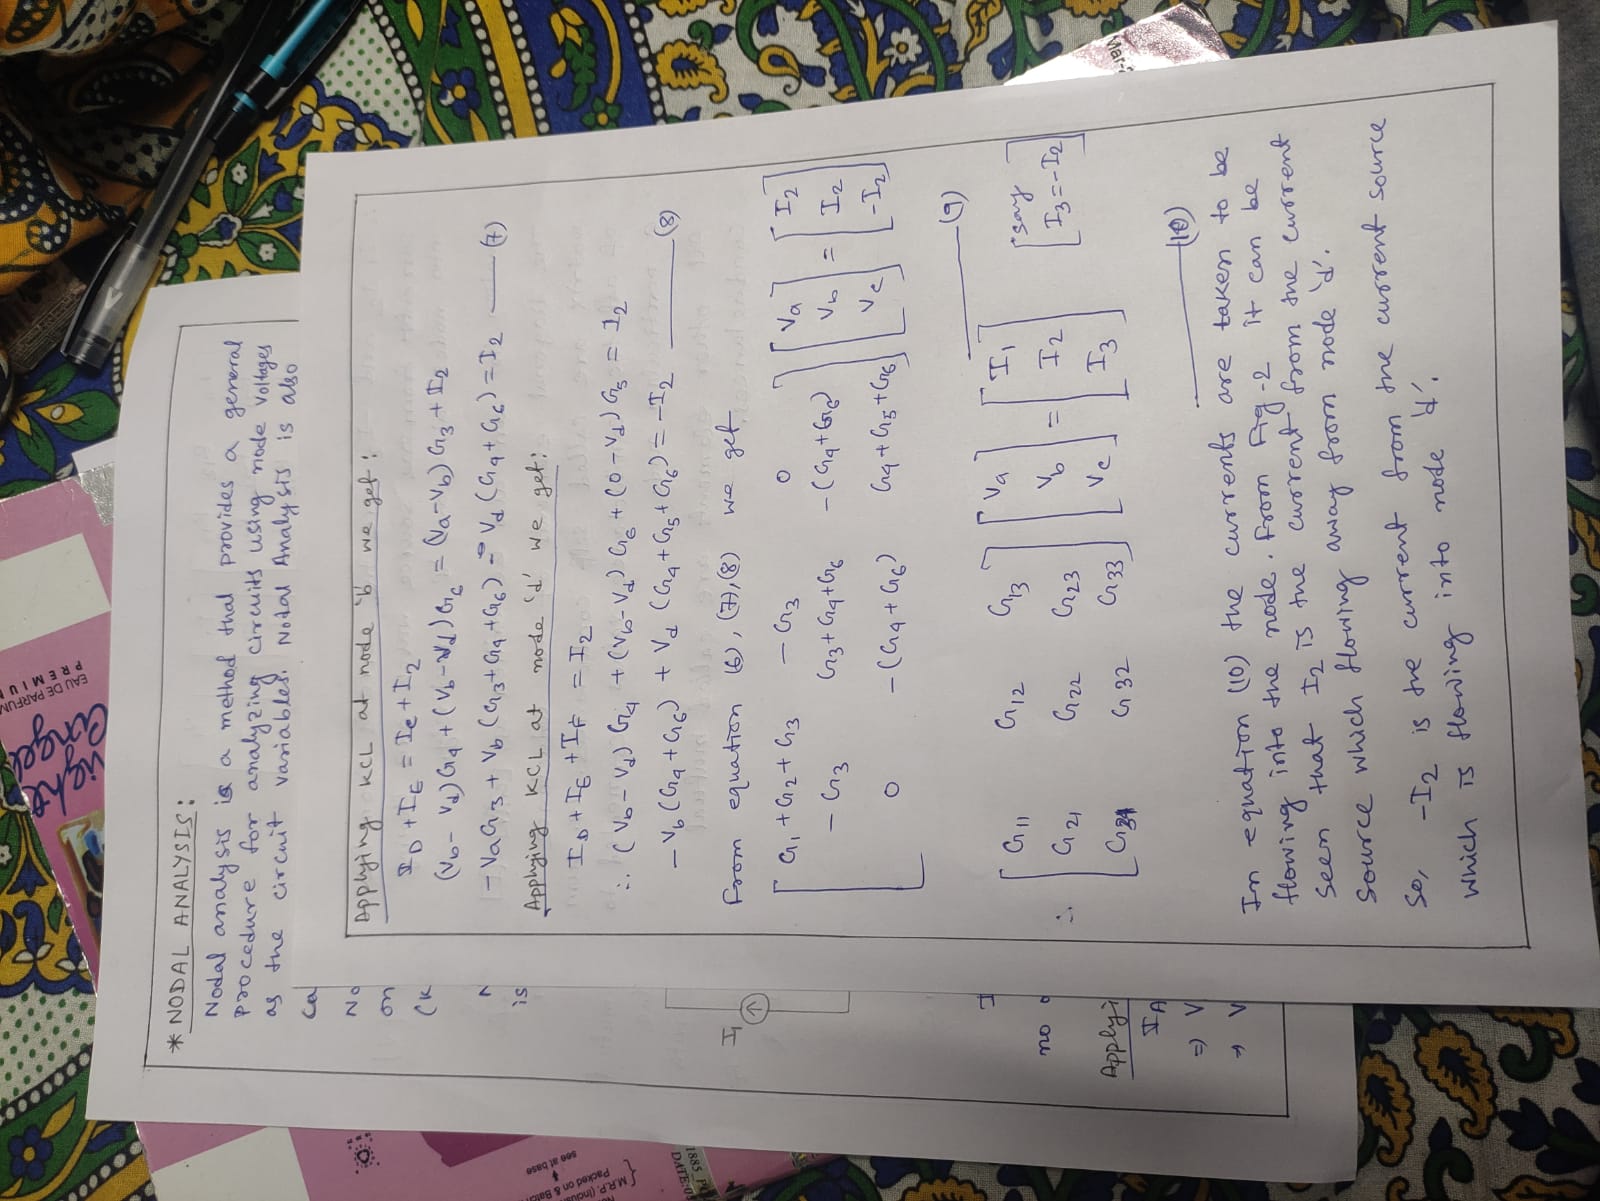 Night
Angel
EAU DE PARFUM
PREMIU
* NODAL ANALYSIS:
Nodal analysis is a method that provides a general
procedure for analyzing circuits using node voltages
as the circuit variables. Nodal Analysis is also
ca
No
on
(K
N
is
I₁
I
no
Applyi
I_A
=> V
→ V
Packed on & Batch
see at base
DATE:
1885
Mar-2
Applying KCL at node 'b' we get:
I_D + I_E = I_c + I₂
(V_b - V_d) G₄ + (V_b - V_d) G₆ = (V_a - V_b) G₃ + I₂
- V_a G₃ + V_b (G₃ + G₄ + G₆) - V_d (G₄ + G₆) = I₂ —— (7)
Applying KCL at node 'd' we get:
I_D + I_E + I_F = I₂
∴ (V_b - V_d) G₄ + (V_b - V_d) G₆ + (0 - V_d) G₅ = I₂
- V_b (G₄ + G₆) + V_d (G₄ + G₅ + G₆) = - I₂ —— (8)
From equation (6), (7), (8) we get
[ G₁ + G₂ + G₃   - G₃   0 ] [ V_a ] = [ I₂ ]
[ - G₃   G₃ + G₄ + G₆   - (G₄ + G₆) ] [ V_b ] = [ I₂ ]
[ 0   - (G₄ + G₆)   G₄ + G₅ + G₆ ] [ V_c ] = [ - I₂ ]
—— (9)
∴ [ G₁₁   G₁₂   G₁₃ ] [ V_a ] = [ I₁ ] [ say
[ G₂₁   G₂₂   G₂₃ ] [ V_b ] = [ I₂ ] I₃ = - I₂ ]
[ G₃₁   G₃₂   G₃₃ ] [ V_c ] = [ I₃ ]
—— (10)
In equation (10) the currents are taken to be
flowing into the node. From Fig-2 it can be
seen that I₂ is the current from the current
source which flowing away from node 'd'.
So, - I₂ is the current from the current source
which is flowing into node 'd'.